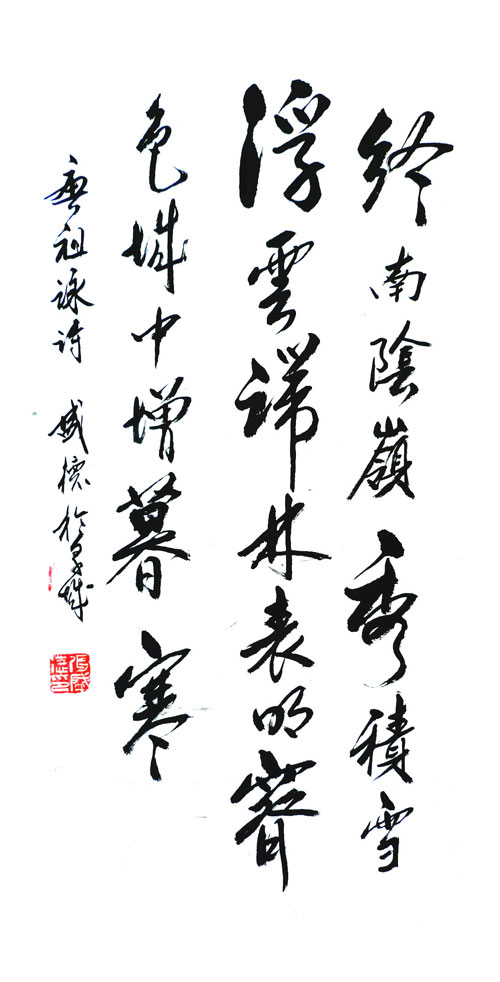 終南陰嶺秀積雪
浮雲端林表明霽
色城中增暮寒
唐祖詠詩 盛 於 城